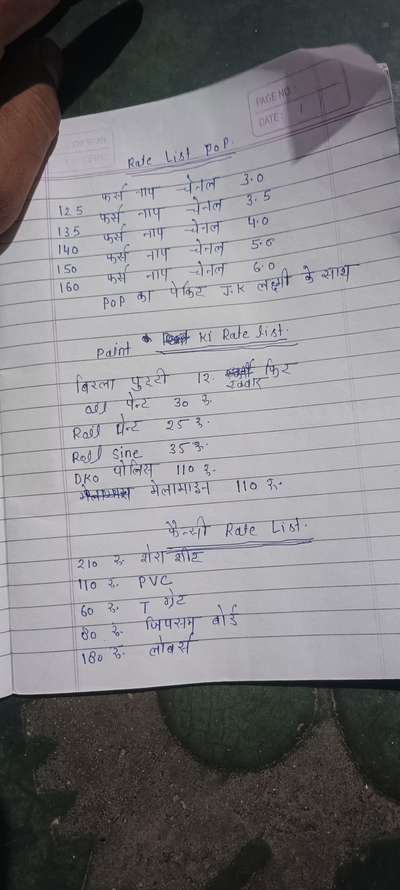 PAGE NO.
DATE:
Rate List PoP.
125 फर्स नाप चेनल 3.0
135 फर्स नाप चेनल 3.5
140 फर्स नाप चेनल 4.0
150 फर्स नाप चेनल 5.0
160 फर्स नाप चेनल 6.0
PoP का पेकिट J.K लक्ष्मी के साथ
Paint Ki Rate List.
बिरला पुट्टी 12. स्क्वार फिट
Oil पेन्ट 30 रु.
Roll पेन्ट 25 रु.
Roll Sine 35 रु.
DKo पोलिस 110 रु.
मेलामाइन 110 रु.
फैन्सी Rate List.
210 रु. शेरा शीट
110 रु. PVC
60 रु. T ग्रेट
80 रु. जिपसम बोर्ड
180 रु. लोवर्स